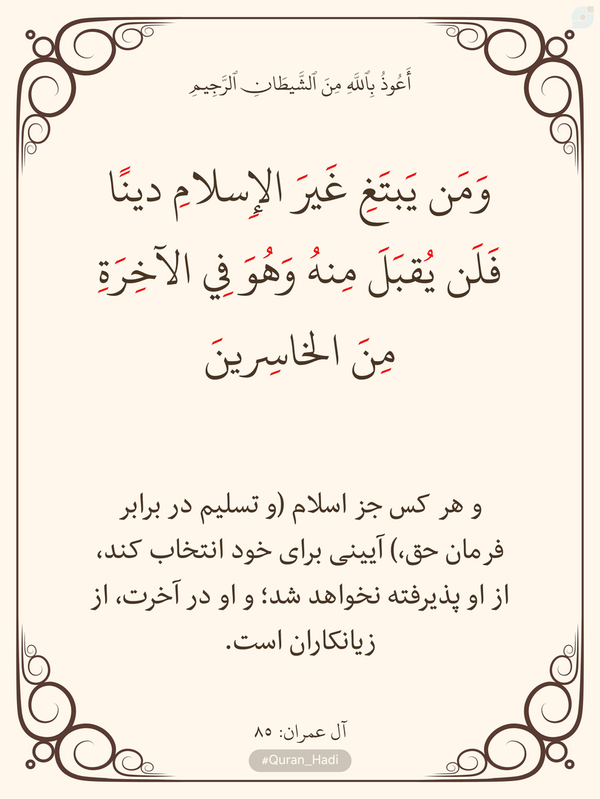 أَعُوذُ بِٱللَّهِ مِنَ ٱلشَّيطَانِ ٱلرَّجِيمِ
وَمَن يَبتَغِ غَيرَ الإِسلامِ دينًا
فَلَن يُقبَلَ مِنهُ وَهُوَ فِي الآخِرَةِ
مِنَ الخاسِرينَ
و هر کس جز اسلام (و تسلیم در برابر
فرمان حق،) آیینی برای خود انتخاب کند،
از او پذیرفته نخواهد شد؛ و او در آخرت، از
زیانکاران است.
آل عمران: ٨٥
#Quran_Hadi